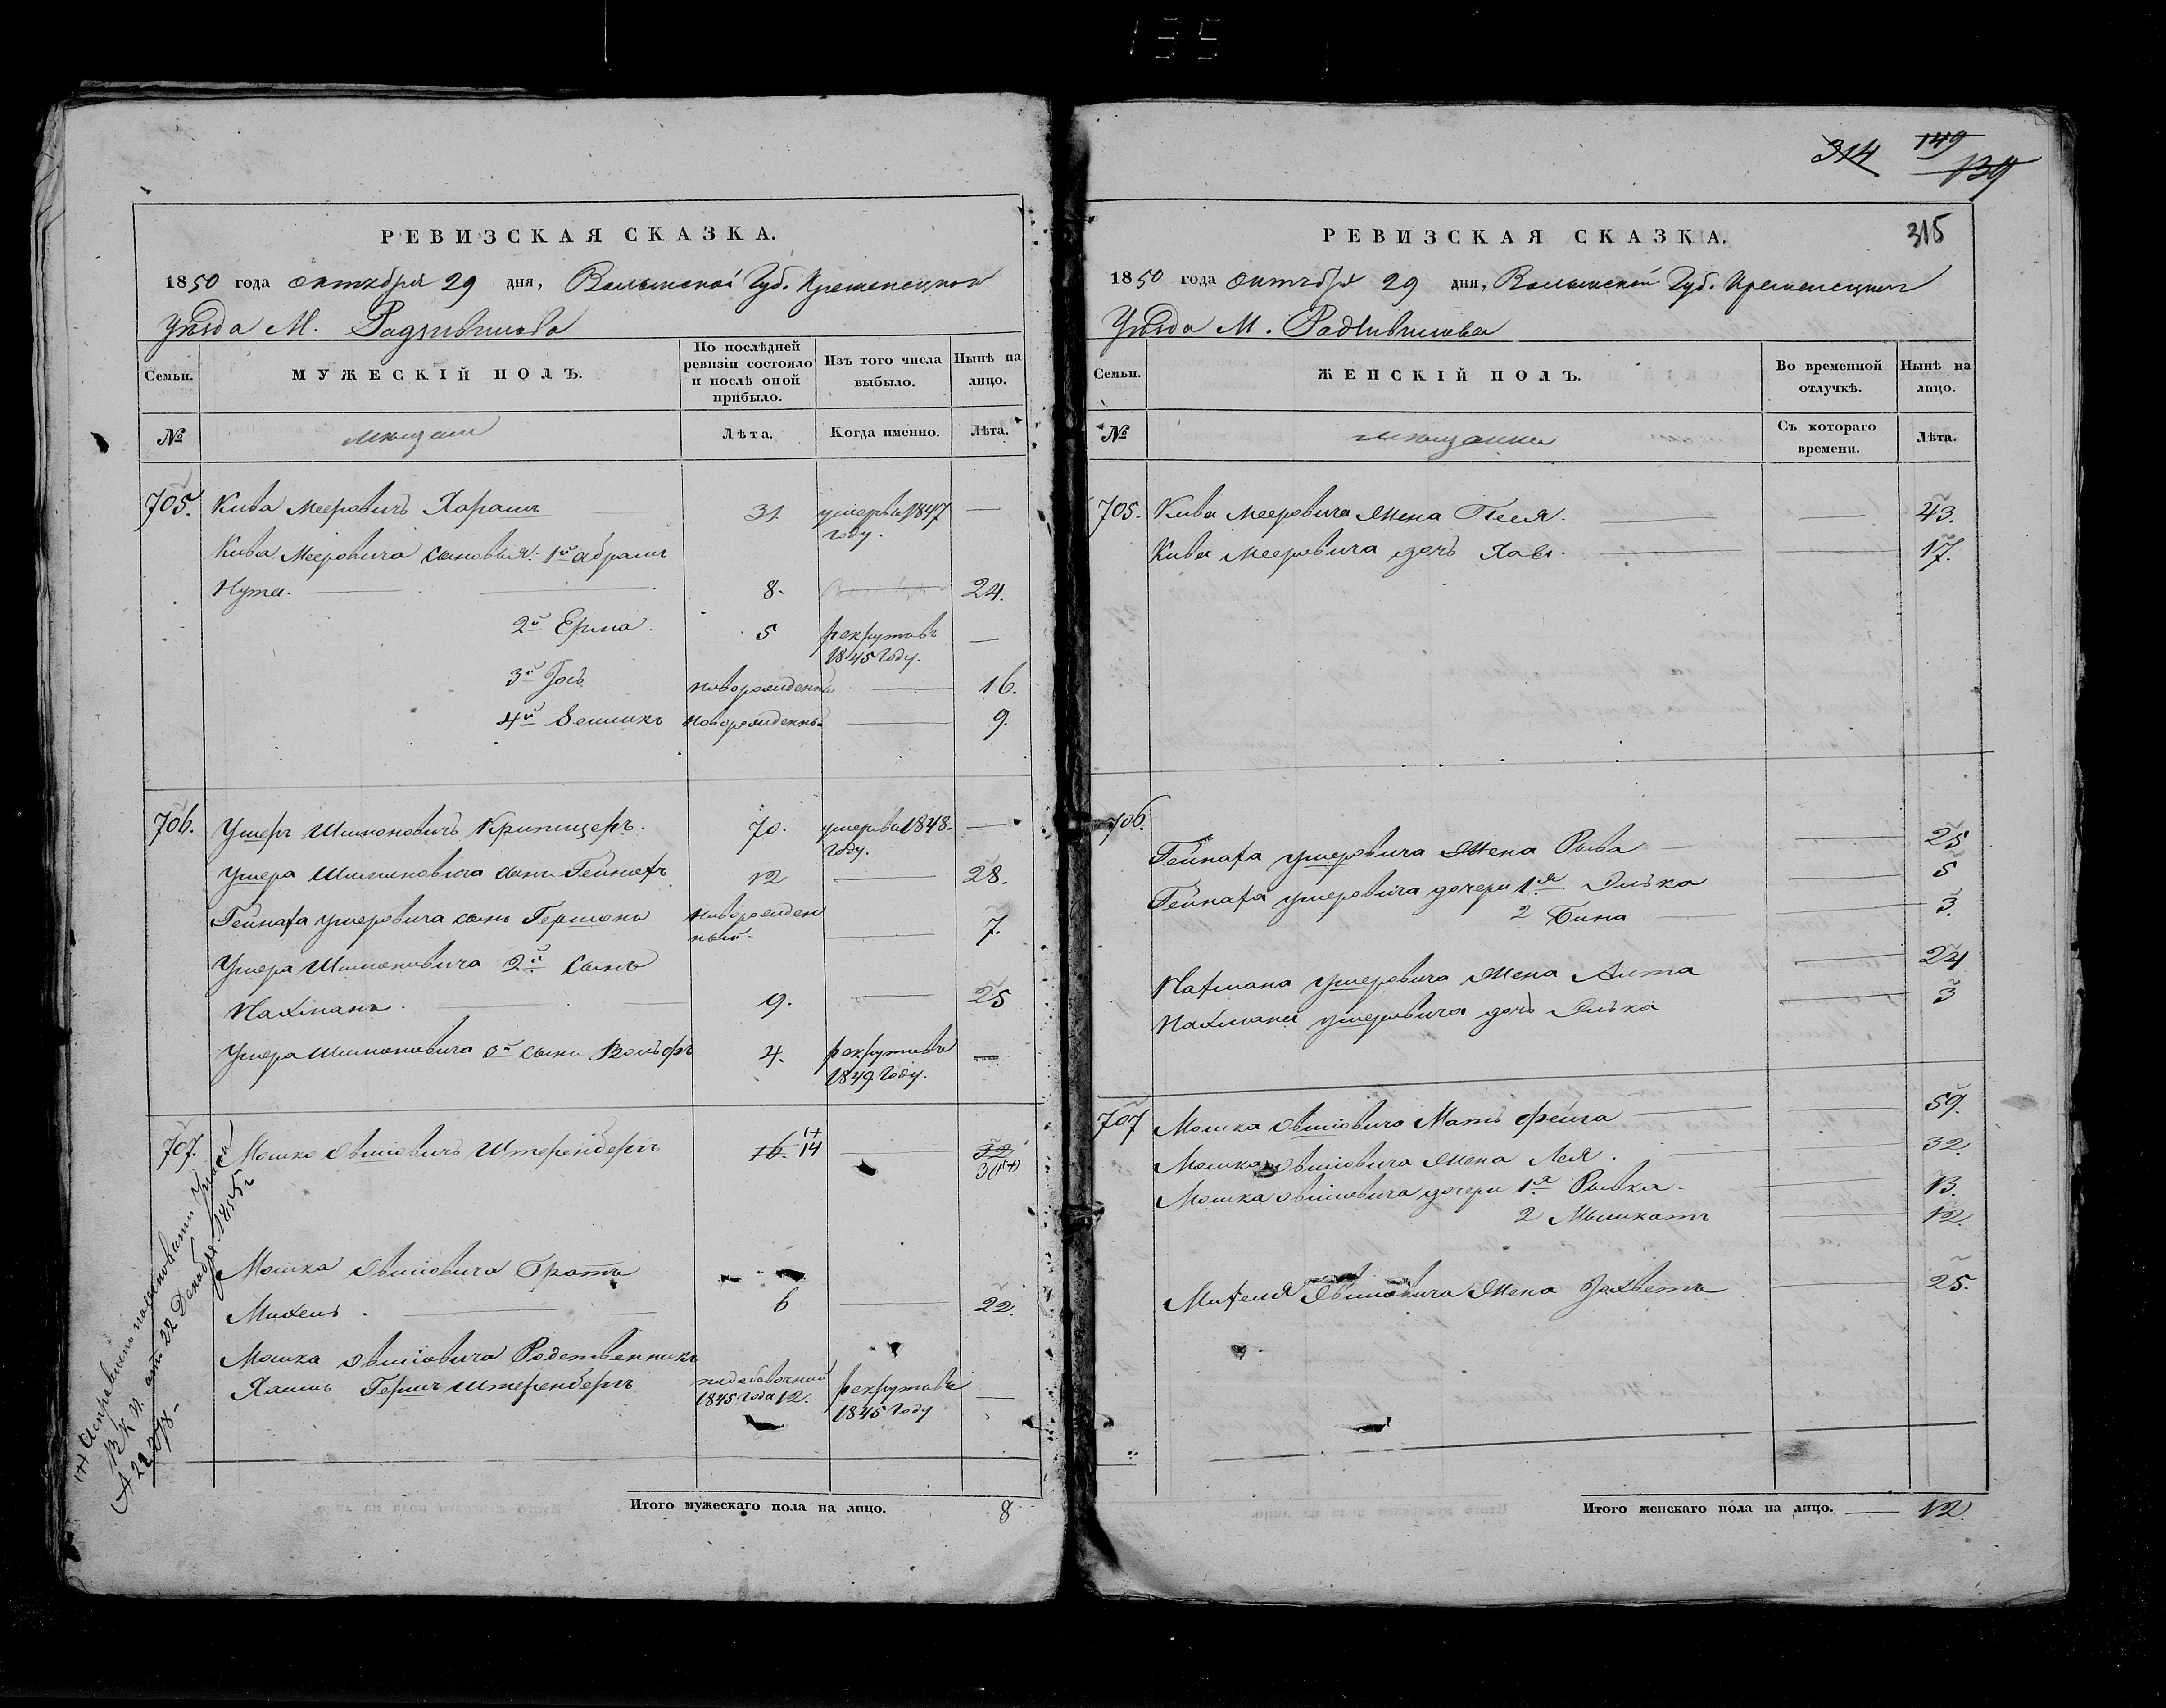 135
РЕВИЗСКАЯ СКАЗКА.
1850 года октября 29 дня, Волынской Губ. Кременецкого
Уѣзда М. Радзивилова
Семьи.
МУЖЕСКІЙ ПОЛЪ.
По послѣдней ревизіи состояло и послѣ оной прибыло.
Изъ того числа выбыло.
Нынѣ на лицо.
№
мещане
Лѣта.
Когда именно.
Лѣта.
705. Кива Мееровичъ Хорашъ 31. умеръ въ 1847 году. —
Кива Мееровича сыновья: 1й Абрамъ
Нута. 8. 24.
2й Ерма. 5 рекрутъ въ 1845 году. —
3й Іось новорожденный — 16.
4й Зелликъ новорожденный — 9.
706. Ушеръ Шимоновичъ Крипицеръ. 70. умеръ въ 1848. году. —
Ушера Шимоновича сынъ Гейнахъ 12 — 28.
Гейнаха Ушеровича сынъ Гершонъ новорожденный — 7.
Ушера Шимоновича 2й сынъ
Нахманъ. 9. — 25
Ушера Шимоновича 3й сынъ Вольфъ 4. рекрутъ въ 1849 году. —
707. Мошко Овшіовичъ Штеренбергъ 16. 14 — 32 30(+)
Мошка Овшіовича братъ
Михель. 6 — 22.
Мошка Овшіовича родственникъ
Хаимъ Гершъ Штеренбергъ 1845 года 12. рекрутъ въ 1845 году —
(+) Исправлено
В. К. П. отъ 22 Декабря 1855 г
Итого мужескаго пола на лицо. 8
314 149 139
315
РЕВИЗСКАЯ СКАЗКА.
1850 года октября 29 дня, Волынской Губ. Кременецкого
Уѣзда М. Радзивилова
Семьи.
ЖЕНСКІЙ ПОЛЪ.
Во временной отлучкѣ.
Нынѣ на лицо.
№
мещанки
Съ котораго времени.
Лѣта.
705. Кива Мееровича жена Песя. — 43.
Кива Мееровича дочь Хава. — 17.
706.
Гейнаха Ушеровича жена Рыва — 25
Гейнаха Ушеровича дочери 1я Элька — 5
2 Бина — 3.
Нахмана Ушеровича жена Алта — 24
Нахмана Ушеровича дочь Элька — 3
707 Мошка Овшіовича мать Фейга — 59.
Мошка Овшіовича жена Лея. — 32.
Мошка Овшіовича дочери 1я Рывка — 13.
2 — 12.
Михеля Овшіовича жена — 25.
Итого женскаго пола на лицо. — 12